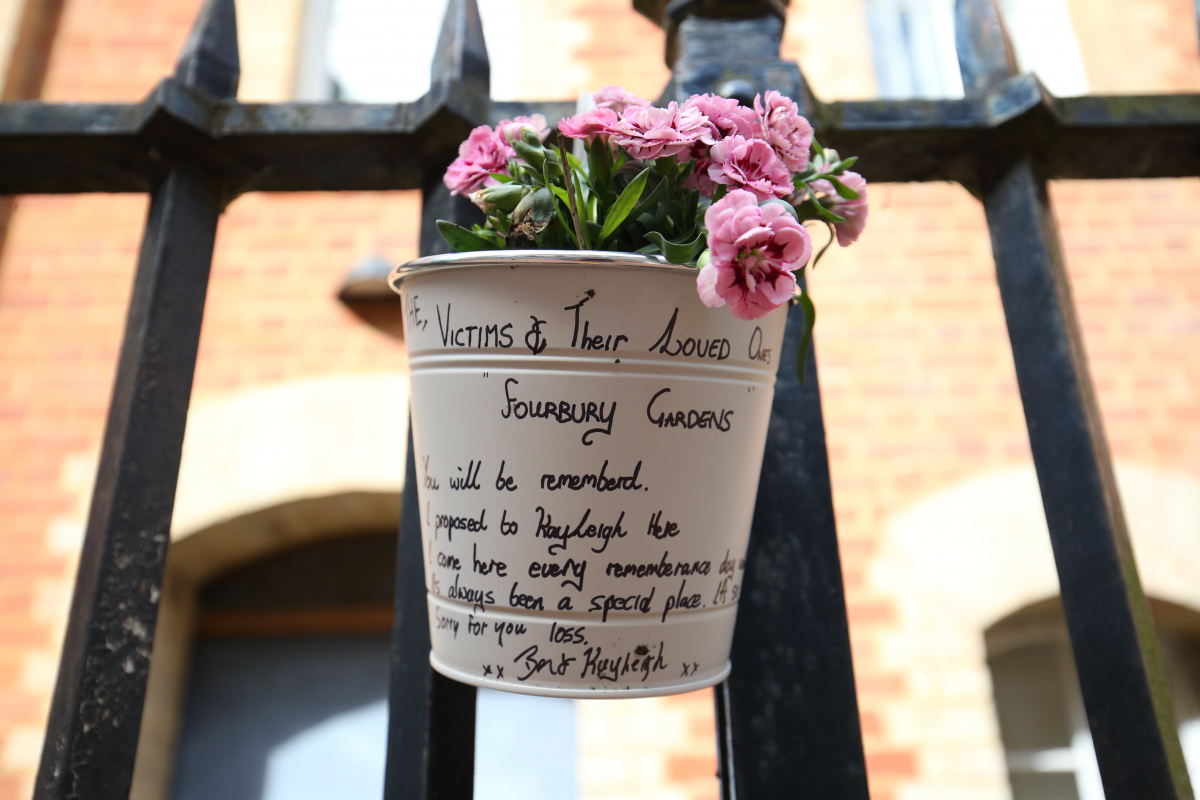 HE, VICTIMS & Their LOVED Ones
"FOURBURY GARDENS"
You will be rememberd.
I proposed to Kayleigh Here
I come here every rememberance day
always been a special place. It's
Sorry for you loss.
xx Ben & Kayleigh xx